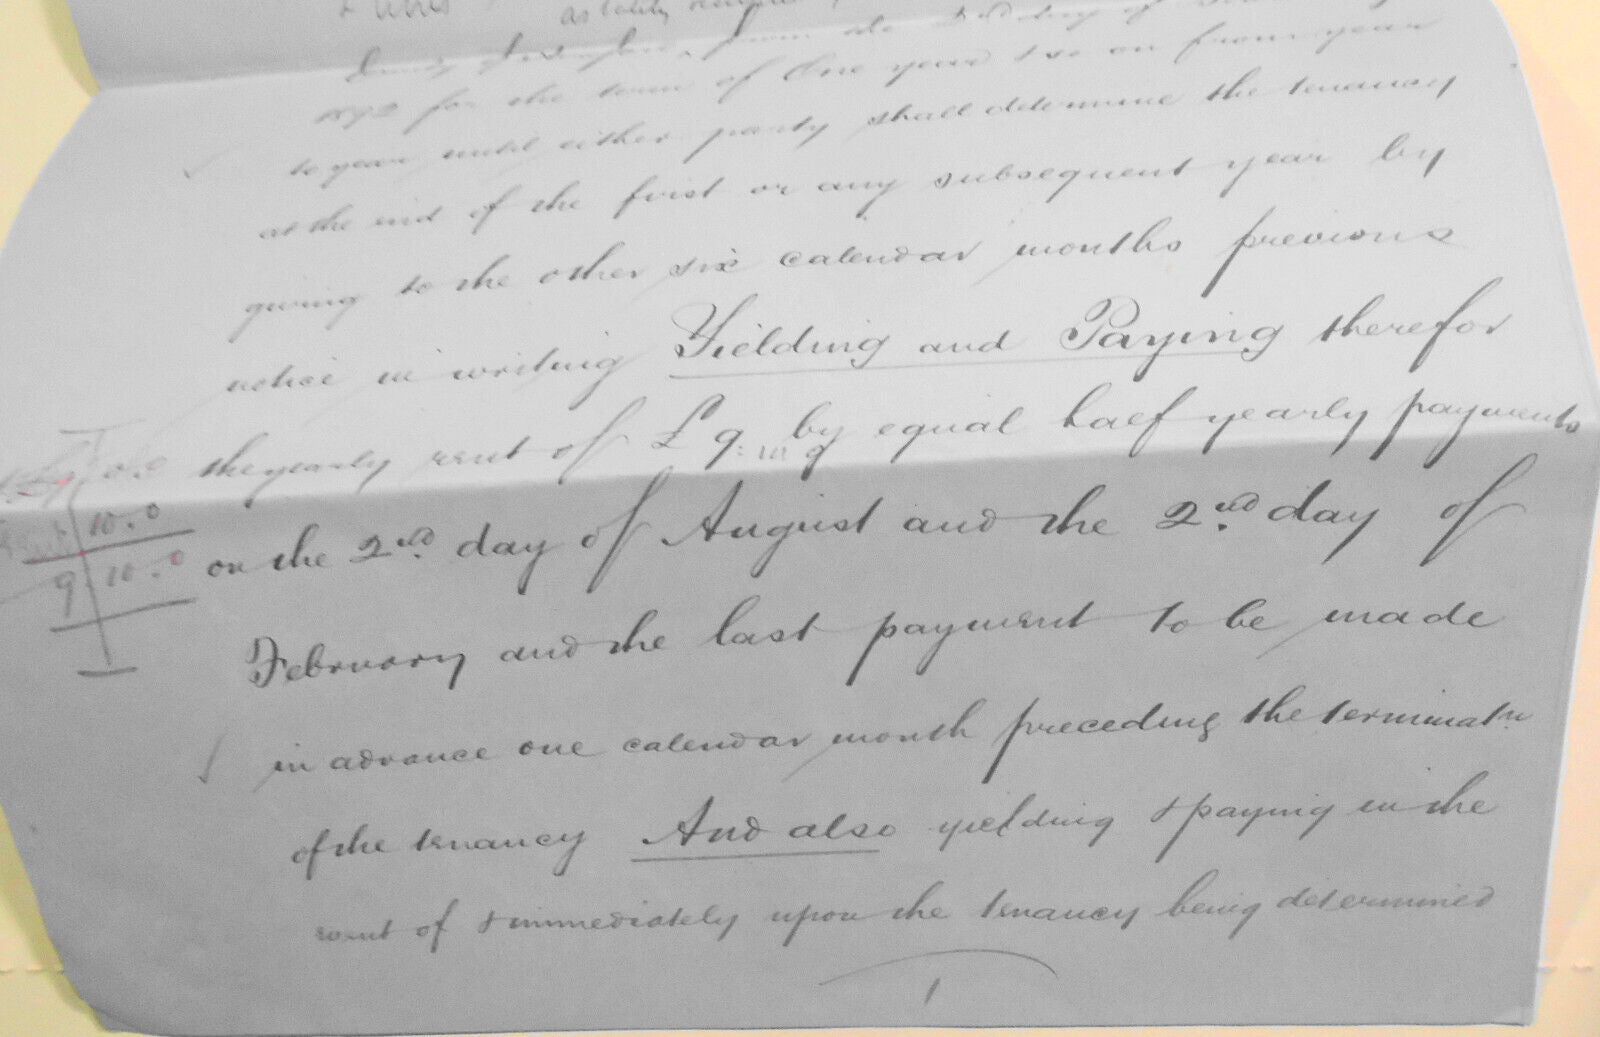 as lately
from the 2nd day of
1892 for the term of One year & so on from year
to year until either party shall determine the tenancy
at the end of the first or any subsequent year by
giving to the other six calendar months previous
notice in writing Yielding and Paying therefor
the yearly rent of £9. 10. 0 by equal half yearly payments
10. 0
9. 10. 0
on the 2nd. day of August and the 2nd. day of
February and the last payment to be made
in advance one calendar month preceding the terminatn.
of the tenancy And also yielding & paying in the
event of & immediately upon the tenancy being determined
1